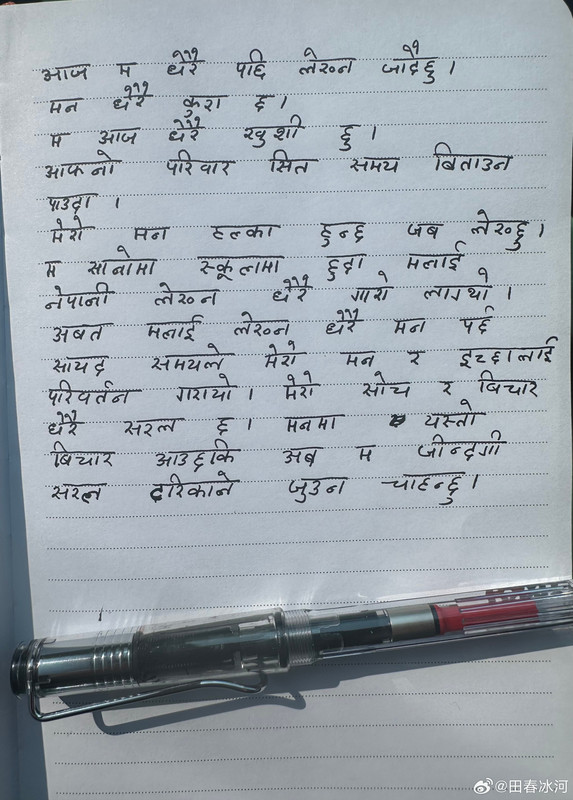 आज म धेरै पछि लेख्न जाँदैछु।
मन धेरै कुरा छ।
म आज धेरै खुशी छु।
आफनो परिवार सित समय बिताउन
पाउदा।
मेरो मन हल्का हुन्छ जब लेख्छु।
म सानोमा स्कूलमा हुदा मलाई
नेपाली लेख्न धेरै गारो लाग्थो।
अबत मलाई लेख्न धेरै मन पर्छ
सायद समयले मेरो मन र इच्छालाई
परिवर्तन गरायो। मेरो सोच र बिचार
धेरै सरल छ। मनमा यस्तो
बिचार आउछकि अब म जीन्दगी
सरल तरिकाले जुउन चाहन्छु।
@田春冰河